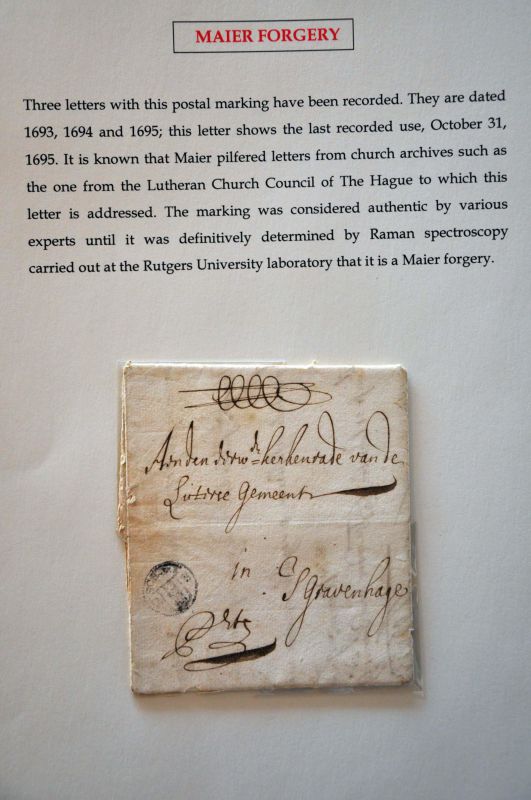 MAIER FORGERY
Three letters with this postal marking have been recorded. They are dated
1693, 1694 and 1695; this letter shows the last recorded use, October 31,
1695. It is known that Maier pilfered letters from church archives such as
the one from the Lutheran Church Council of The Hague to which this
letter is addressed. The marking was considered authentic by various
experts until it was definitively determined by Raman spectroscopy
carried out at the Rutgers University laboratory that it is a Maier forgery.
kerkenrade van de
Luterse Gemeente
in S Gravenhage